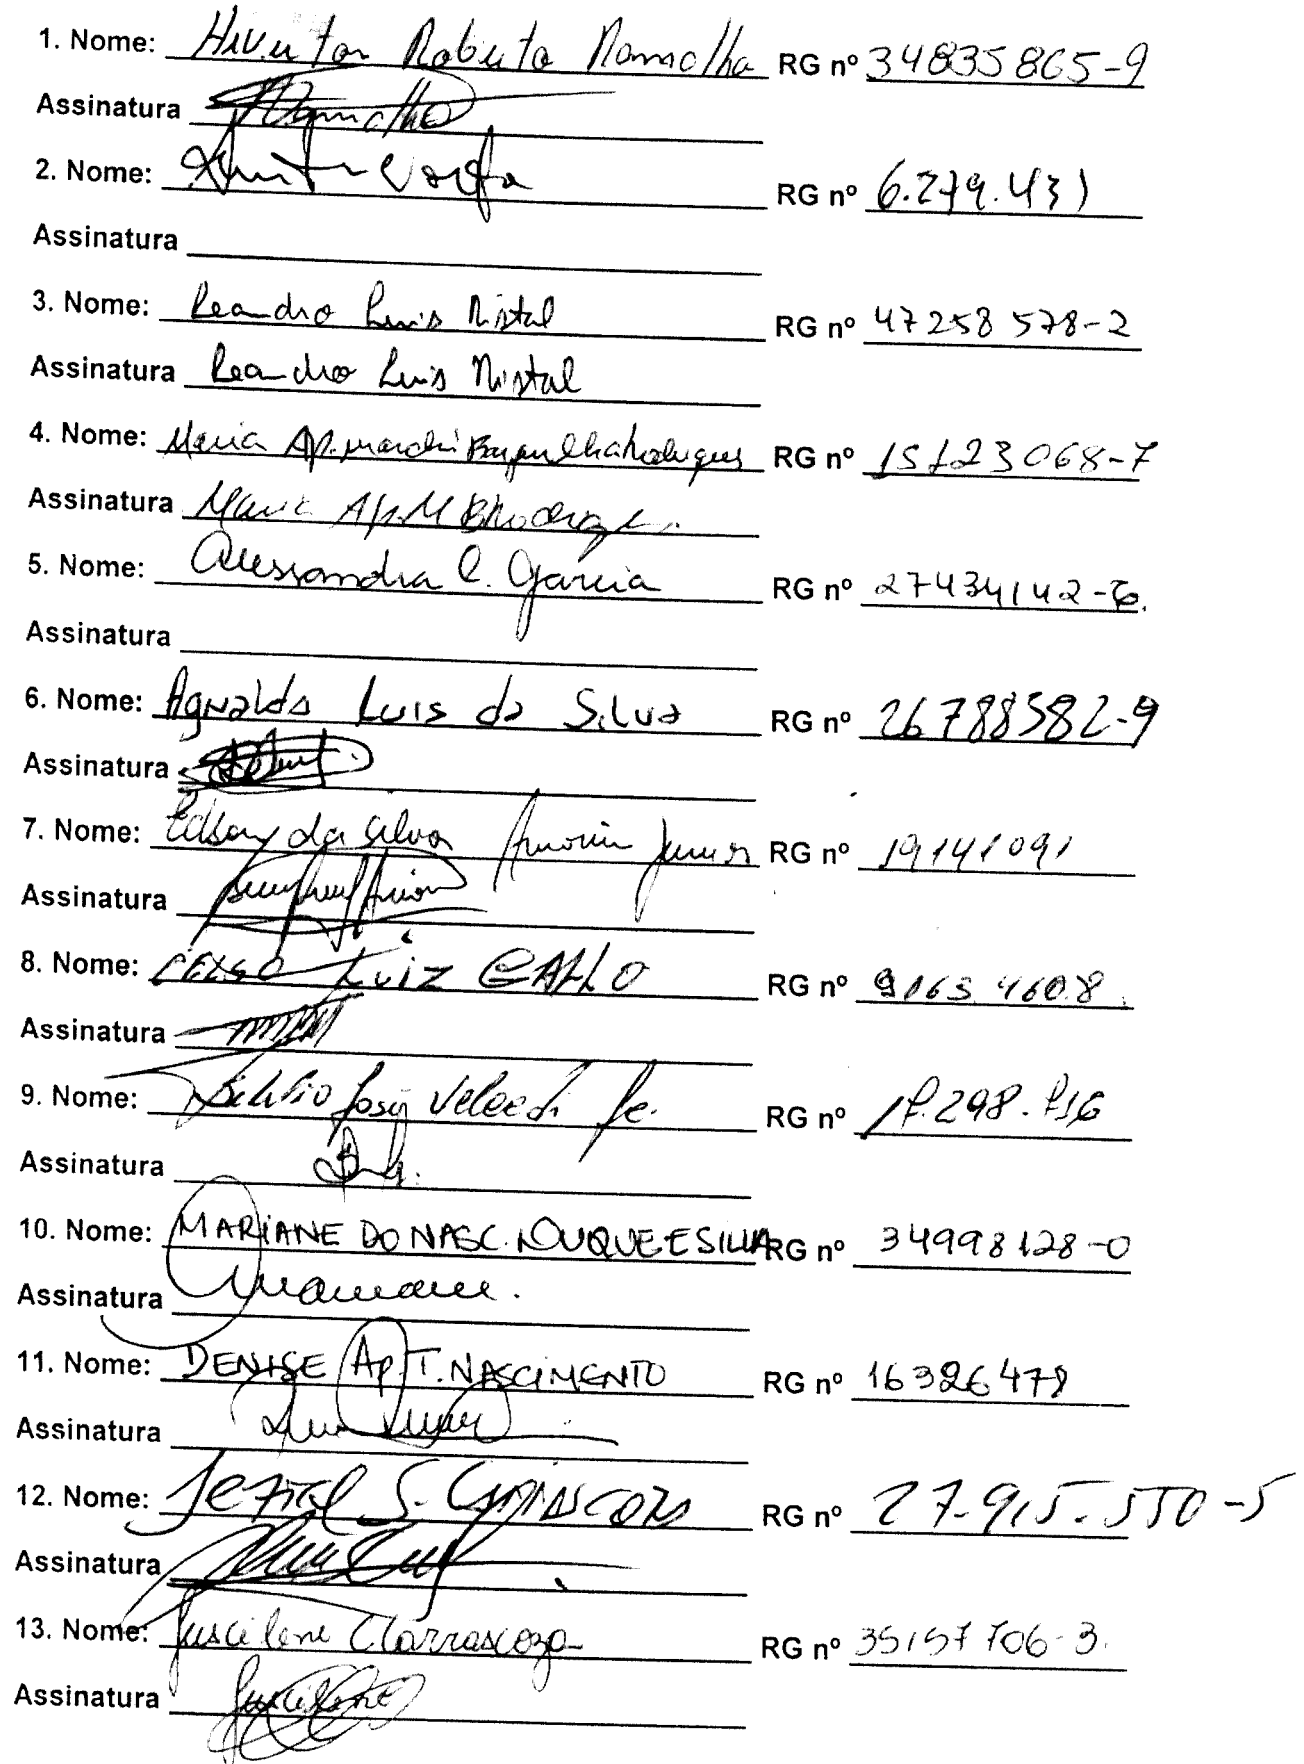 1. Nome: Roberto Ramalho RG nº 34835865-9
Assinatura Ramalho
2. Nome: RG nº 6.279.431
Assinatura
3. Nome: Leandro Luis Nistal RG nº 47258578-2
Assinatura Leandro Luis Nistal
4. Nome: Maria Ap. RG nº 15123068-7
Assinatura Maria Ap. M
5. Nome: Alessandra C. Garcia RG nº 27434142-6.
Assinatura
6. Nome: Agnaldo Luis da Silva RG nº 26788582-9
Assinatura
7. Nome: Edson da Silva Amorim Junior RG nº 19141091
Assinatura
8. Nome: CELSO LUIZ GALLO RG nº 9165 460.8
Assinatura
9. Nome: José RG nº
Assinatura
10. Nome: MARIANE DO NASC. DUQUE E SILVA RG nº 34998128-0
Assinatura Mariane.
11. Nome: DENISE Ap. T. NASCIMENTO RG nº 16326478
Assinatura
12. Nome: S. RG nº 27.915.550-5
Assinatura
13. Nome: Juscilene C Carrascoza RG nº 35157706-3.
Assinatura Juscilene